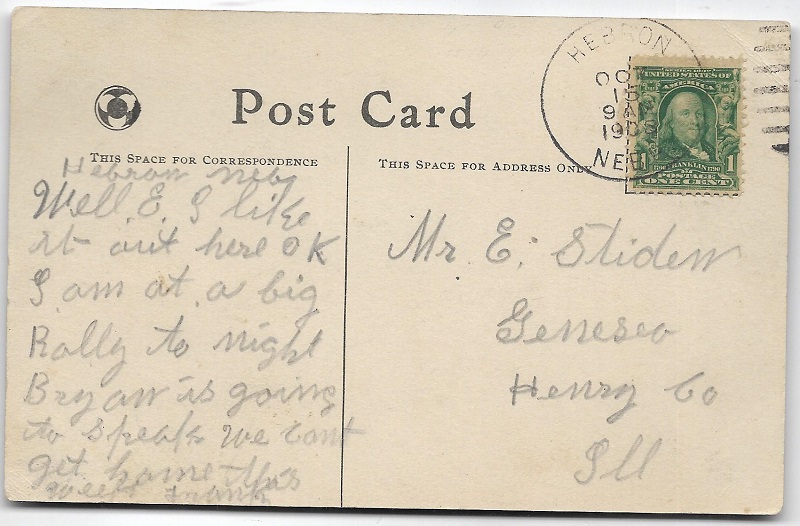 Post Card
THIS SPACE FOR CORRESPONDENCE
THIS SPACE FOR ADDRESS ONLY
HEBRON
OC
15
9 AM
1908
NEB
SERIES 1902
UNITED STATES OF
AMERICA
1706 FRANKLIN 1790
1
POSTAGE
ONE CENT
Hebron Neb
Well. E. I like
it out here OK
I am at a big
Rally to night
Bryan is going
to speak we cant
get home this
week Frank
Mr E. Stiden
Geneseo
Henry Co
Ill